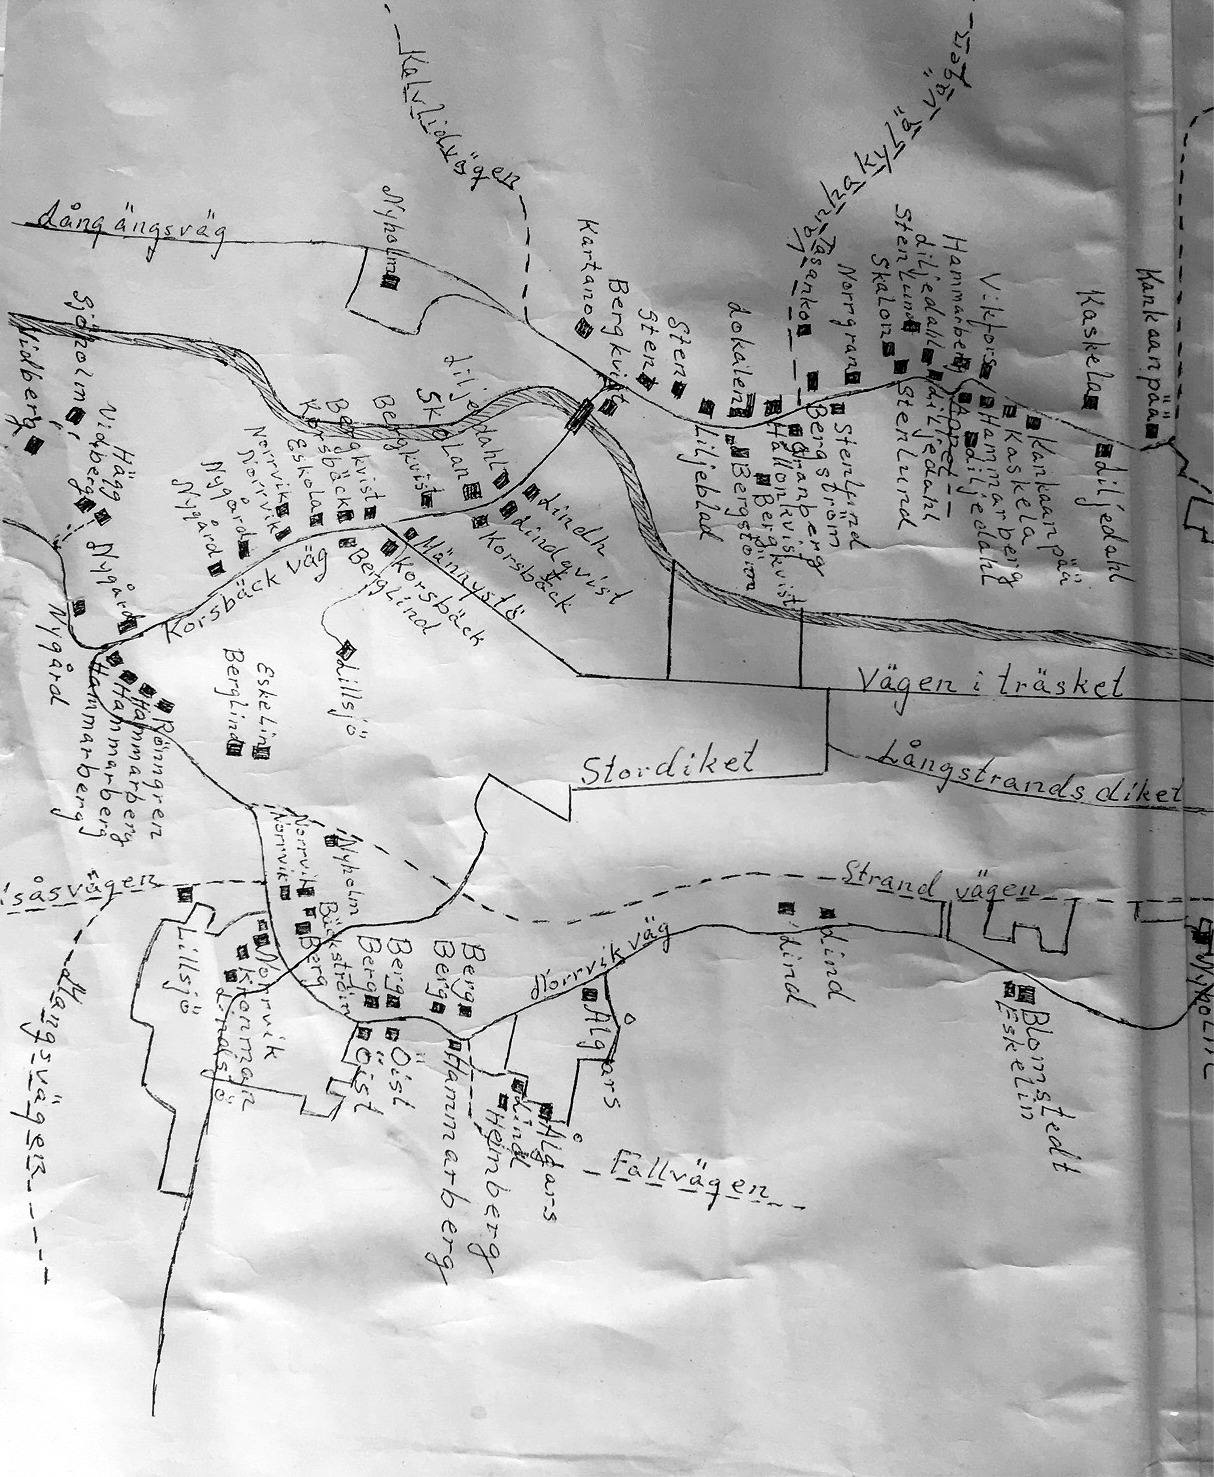 Kalvhidvägen
Långängsväg
Nyholm
Kartano
Bergkvist
Sten
Sten
Lokalen
Vanhakylävägen
Tasanko
Norrgran
Skalon
Stenlund
Liljedahl
Hammarberg
Viktors
Kaskela
Kankaanpää
Sjöholm
Vidberg
Vidberg
Hägg
Nygård
Nygård
Nygård
Norrvik
Norrvik
Eskola
Korsbäck
Bergkvist
Bergkvist
Skolan
Liljedahl
Lindh
Lindqvist
Korsbäck
Männystö
Korsbäck
Berglind
Liljeblad
Bergström
Bergkvist
Hällonkvist
Granberg
Bergström
Stenlund
Stenlund
Liljedahl
Liljedahl
Hammarberg
Kaskela
Kankaanpää
Liljedahl
Korsbäck väg
Nygård
Hammarberg
Hammarberg
Hammarberg
Rönngren
Berglind
Eskelin
Lillsjö
Vägen i träsket
Stordiket
Långstrandsdiket
Norrvik
Norrvik
Nyholm
Strandvägen
Lillsjö
Norrvik
Kronman
Lindsjö
Berg
Bäckström
Berg
Berg
Berg
Berg
Norrvik väg
Lind
Lind
Nyholm
Blomstedt
Eskelin
Algars
Öist
Öist
Hammarberg
Heimberg
Lind
Algars
Fallvägen